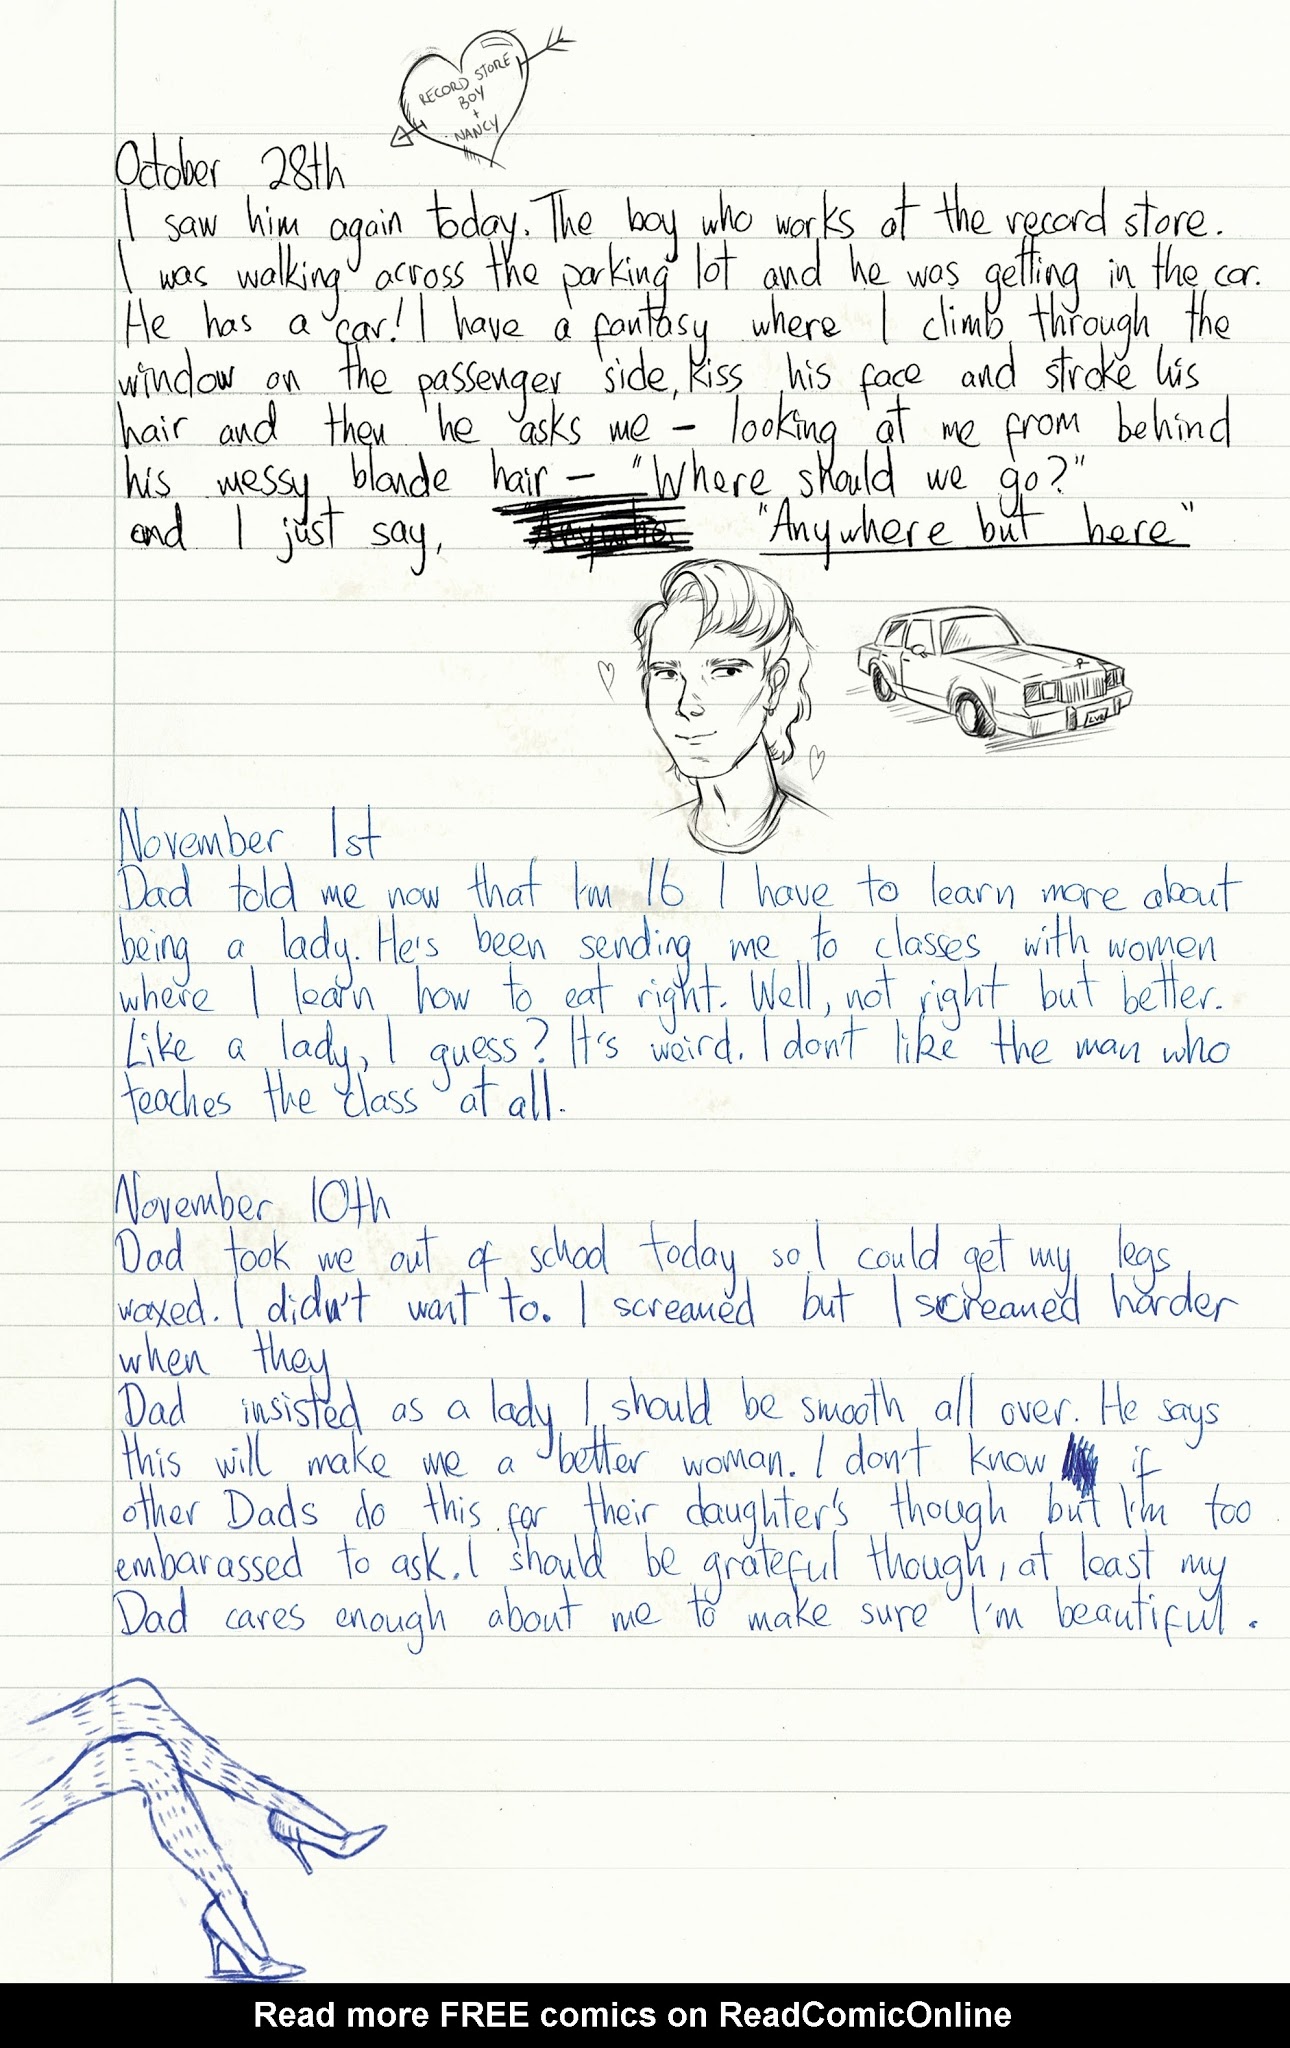 RECORD STORE
BOY
+
NANCY
October 28th
I saw him again today. The boy who works at the record store.
I was walking across the parking lot and he was getting in the car.
He has a car! I have a fantasy where I climb through the
window on the passenger side, kiss his face and stroke his
hair and then he asks me - looking at me from behind
his messy blonde hair - "Where should we go?"
and I just say, "Anywhere but here"
LVR
November 1st
Dad told me now that I'm 16 I have to learn more about
being a lady. He's been sending me to classes with women
where I learn how to eat right. Well, not right but better.
Like a lady, I guess? It's weird. I don't like the man who
teaches the class at all.
November 10th
Dad took me out of school today so I could get my legs
waxed. I didn't want to. I screamed but I screamed harder
when they
Dad insisted as a lady I should be smooth all over. He says
this will make me a better woman. I don't know if
other Dads do this for their daughter's though but I'm too
embarassed to ask. I should be grateful though, at least my
Dad cares enough about me to make sure I'm beautiful.
Read more FREE comics on ReadComicOnline